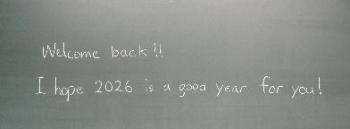 Welcome back!!
I hope 2026 is a good year for you!